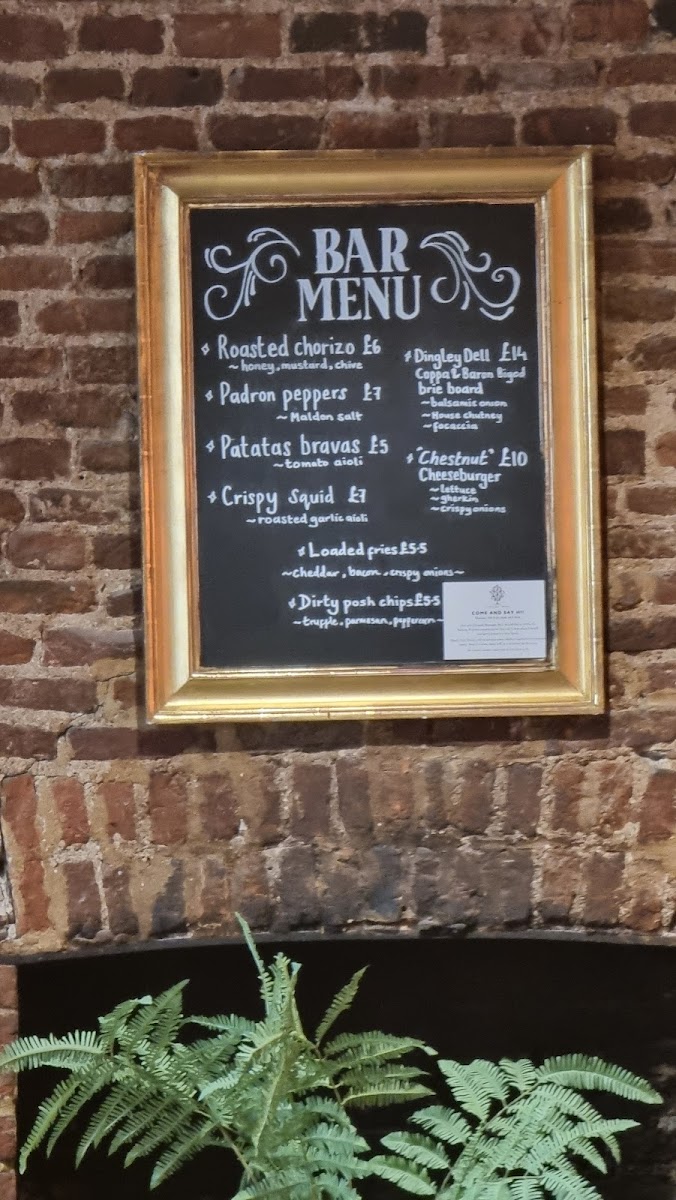 BAR
MENU
Roasted chorizo £6
~ honey, mustard, chive
Padron peppers £7
~ Maldon salt
Patatas bravas £5
~ tomato aioli
Crispy Squid £7
~ roasted garlic aioli
Dingley Dell £14
Coppa & Baron Bigod
brie board
~ balsamic onion
~ House chutney
~ focaccia
'Chestnut' £10
Cheeseburger
~ lettuce
~ gherkin
~ crispy onions
Loaded fries £5.5
~ cheddar, bacon, crispy onions ~
Dirty posh chips £5.5
~ truffle, parmesan, peppercorn ~
COME AND SAY HI!